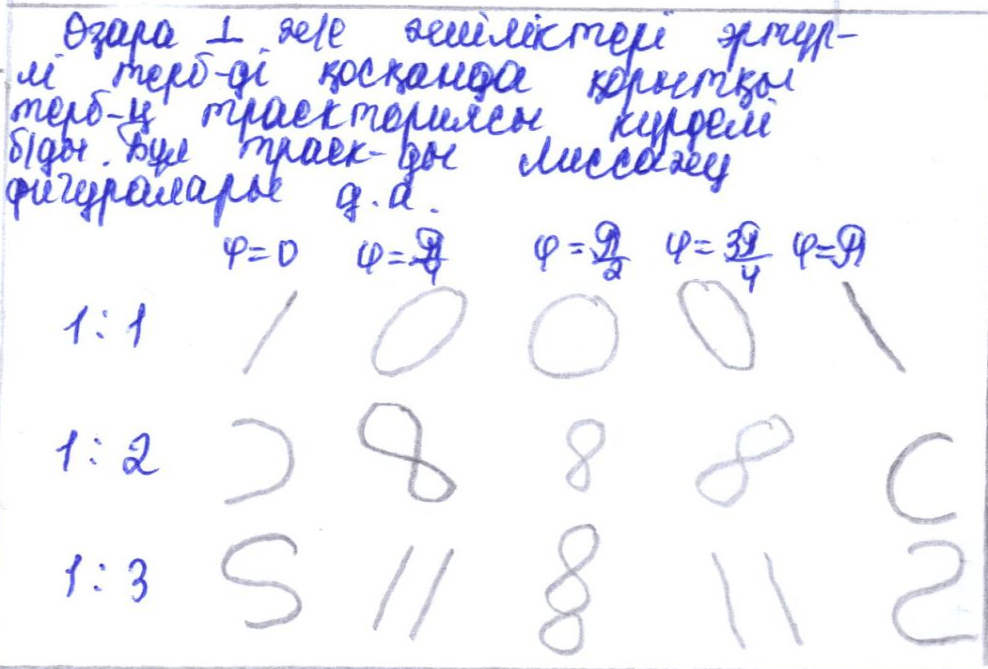 Өзара ⊥ ж/е жиіліктері әртүр-
лі терб-ді қосқанда қорытқы
терб-ң траекториясы күрделі
б/ды. Бұл траек-ды Лиссажу
фигуралары д.а.
φ=0 φ=π/4 φ=π/2 φ=3π/4 φ=π
1:1
1:2
1:3